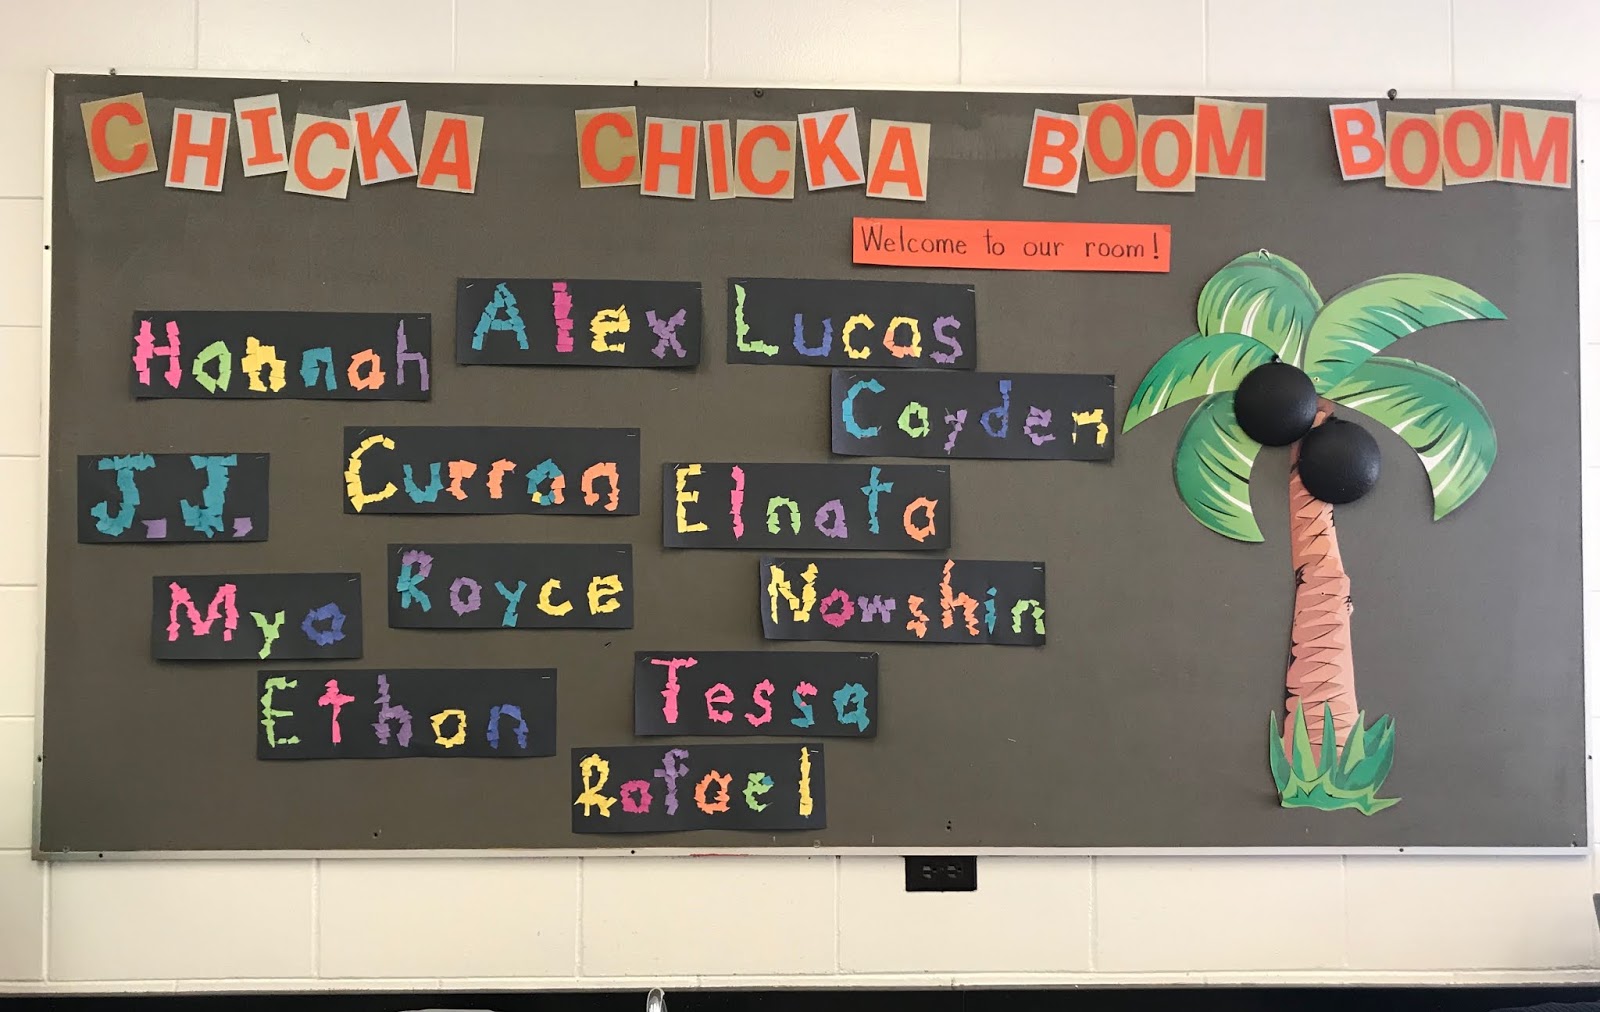 CHICKA CHICKA BOOM BOOM
Welcome to our room!
Hannah
Alex
Lucas
Cayden
J.J.
Curran
Elnata
Mya
Royce
Nowshin
Ethan
Tessa
Rafael